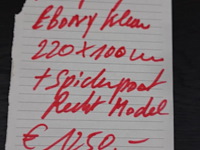 Ebony kleur
220x100cm
+ Spiderpoot
Recht Model
€ 1250,-